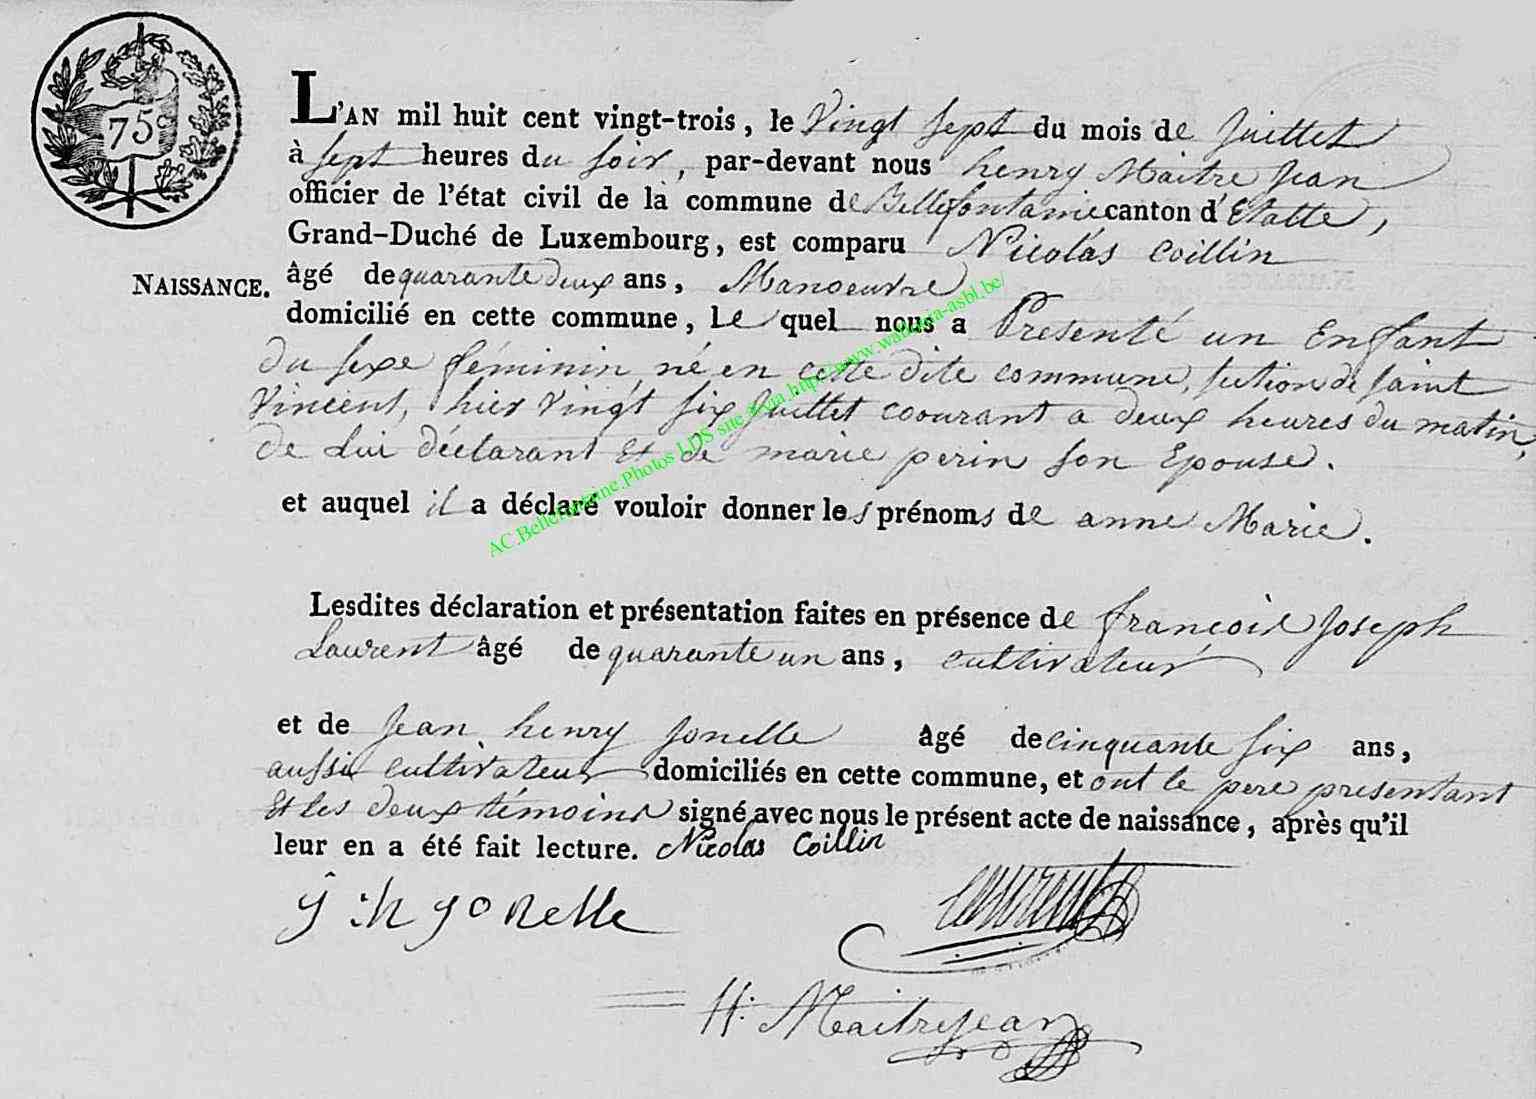 75 c
L'AN mil huit cent vingt-trois, le Vingt sept du mois de Juillet
à sept heures du soir, par-devant nous henry Maitre Jean
officier de l'état civil de la commune de Bellefontaine canton d'Etalle,
Grand-Duché de Luxembourg, est comparu Nicolas Coillin
NAISSANCE. âgé de quarante deux ans, Manoeuvre
domicilié en cette commune, le quel nous a Presenté un Enfant
du sexe féminin, né en cette dite commune, section de saint
Vincent, hier vingt six Juillet coourant a deux heures du matin,
de Lui déclarant Et de marie perin son Epouse.
et auquel il a déclaré vouloir donner les prénoms de anne Marie.
Lesdites déclaration et présentation faites en présence de françois Joseph
Laurent âgé de quarante un ans, cultivateur
et de Jean henry Jonelle âgé de cinquante six ans,
aussi cultivateur domiciliés en cette commune, et ont le pere presentant
Et les deux témoins signé avec nous le présent acte de naissance, après qu'il
leur en a été fait lecture. Nicolas Coillin
J:h Jonelle
Laurent
H. Maitrejean
AC.Bellefontaine.Photos LDS site Jvja.http://www.walthera-asbl.be/